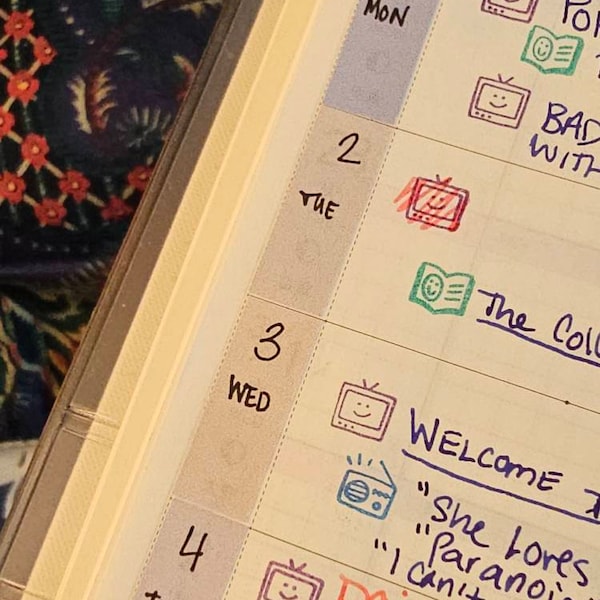 MON
BAD
WITH
2
TUE
The
3
WED
WELCOME
"She Loves
"Paranoi
"I can't
4